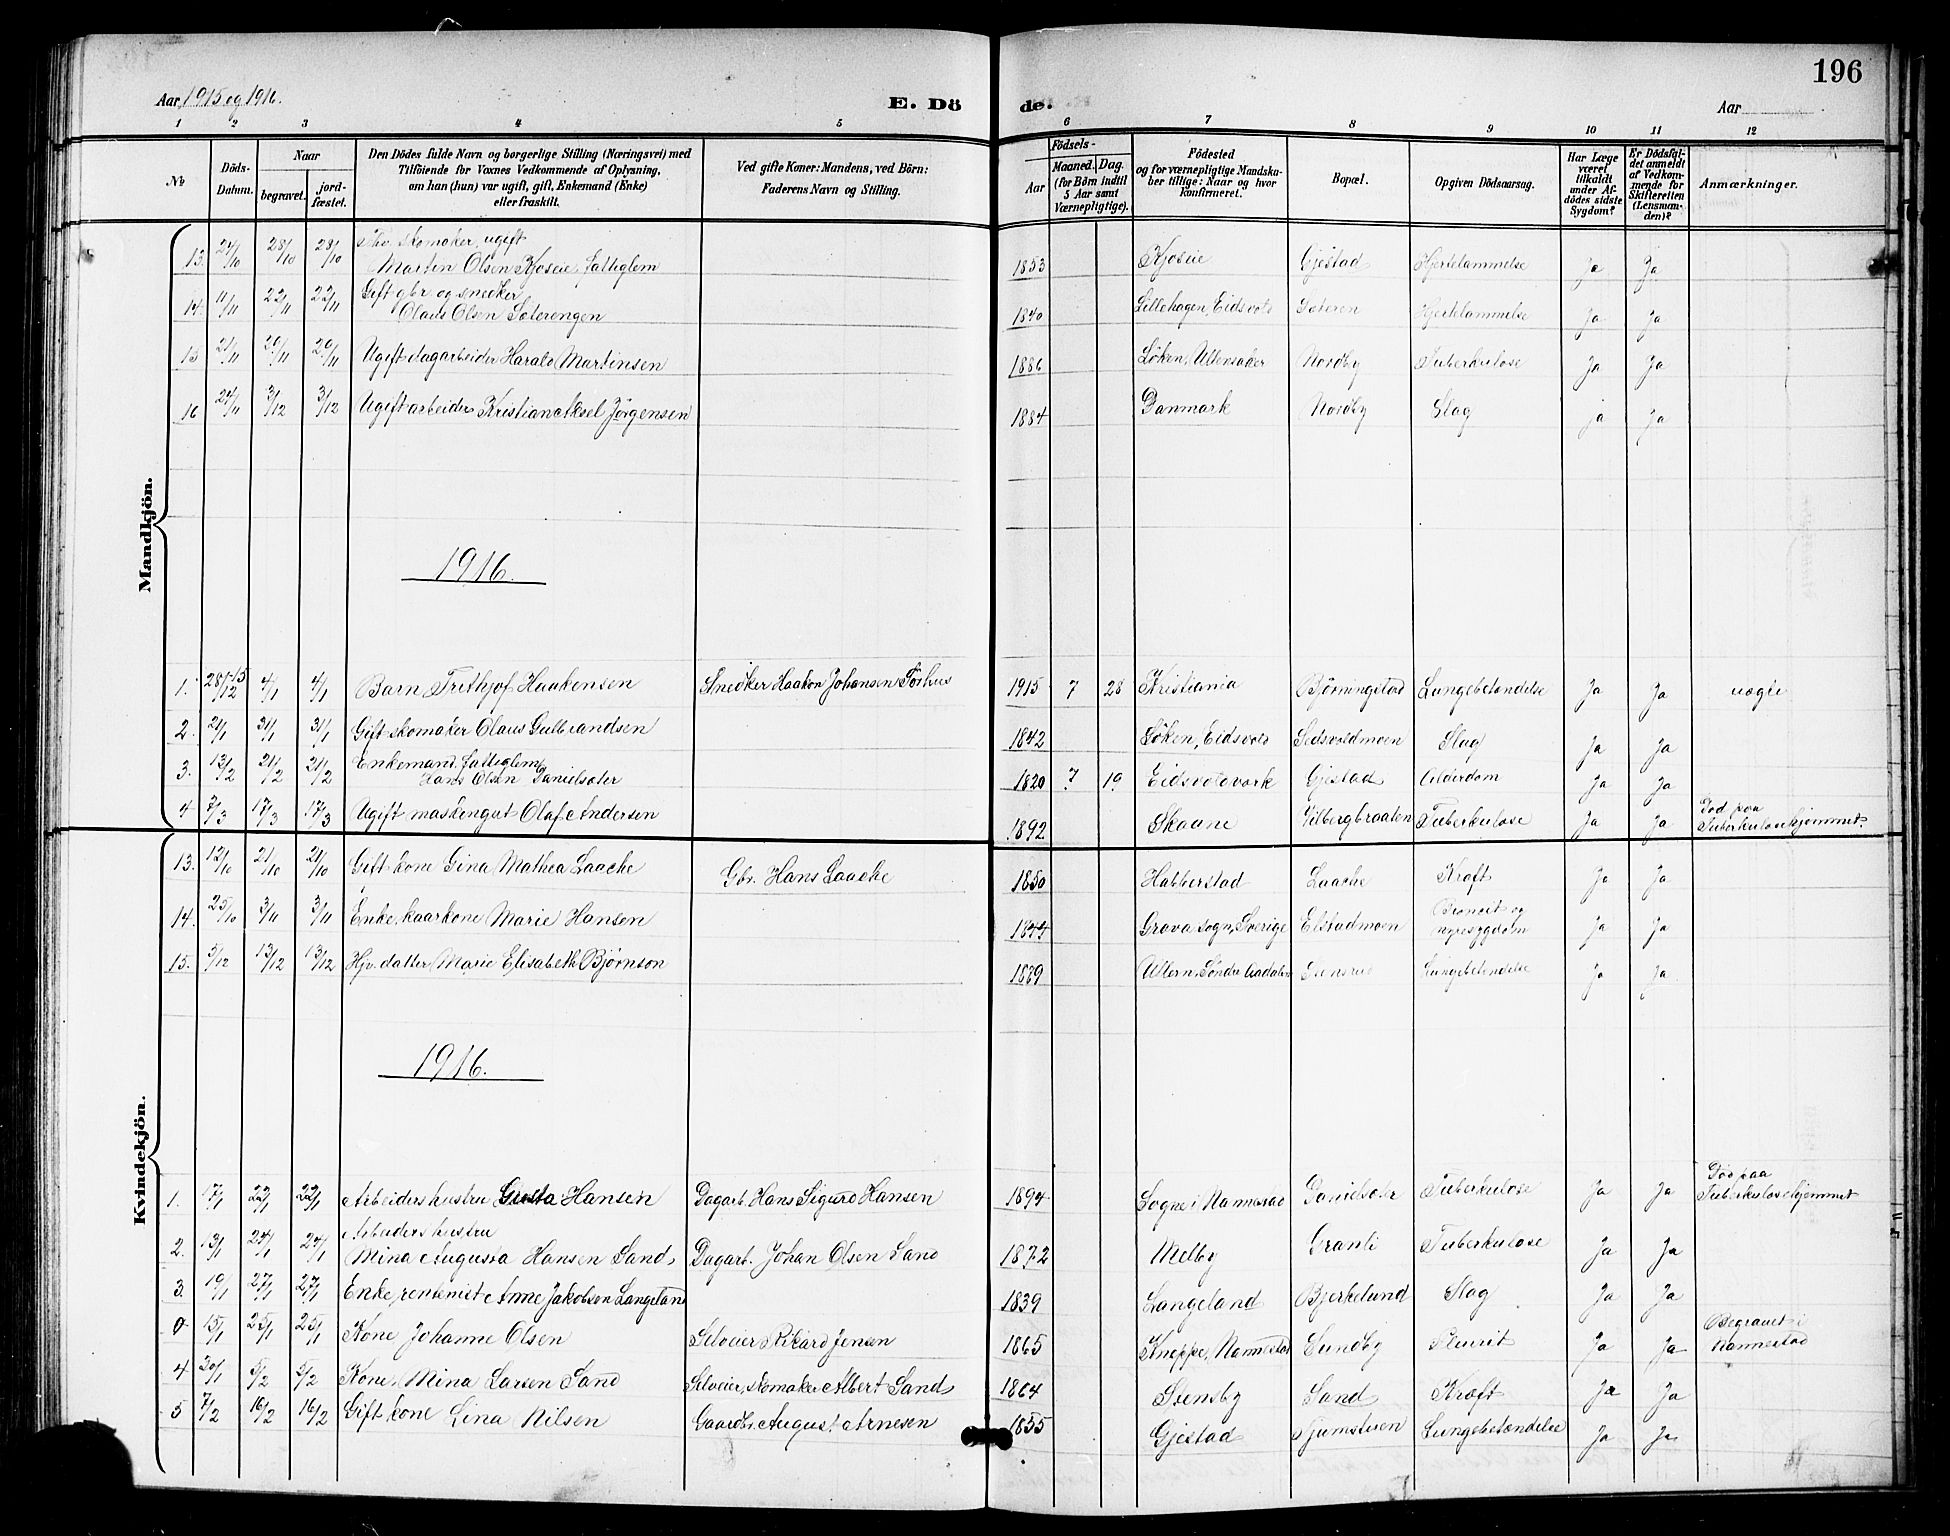 196
Aar 1915 og 1916.
E. Dö de.
Aar
1 2 3 4 5 6 7 8 9 10 11 12
No
Döds-Datum.
Naar begravet. jordfæstet.
Den Dödes fulde Navn og borgerlige Stilling (Næringsvei) med Tilföiende for Voxnes Vedkommende af Oplysning, om han (hun) var ugift, gift, Enkemand (Enke) eller fraskilt.
Ved gifte Koner: Mandens, ved Börn: Faderens Navn og Stilling.
Födsels-
Aar Maaned. Dag. (for Börn indtil 5 Aar samt Værnepligtige).
Födested og for værnepligtige Mandskaber tillige: Naar og hvor konfirmeret.
Bopæl.
Opgiven Dödsaarsag.
Har Læge været tilkaldt under Afdödes sidste Sygdom?
Er Dödsfaldet anmeldt af Vedkommende for Skifteretten (Lensmanden)?
Anmærkninger.
Mandkjön.
13. 24/10 28/10 28/10 skomaker, ugift Martin Olsen Kjoseie, fattiglem 1853 Kjoseie Gjestad Hjertelammelse Ja Ja
14. 11/11 22/11 22/11 Gift gbr. og snedker Olaus Olsen Sæterengen 1840 Lillehagen, Eidsvold Sæteren Hjertelammelse Ja Ja
15 21/11 29/11 29/11 Ugift dagarbeider Harald Martinsen 1886 Løken, Ullensaker Nordby Tuberkulose Ja Ja
16 24/11 3/12 3/12 Ugift arbeider Kristian Aksel Jörgensen 1884 Danmark Nordby Slag ja Ja
1916.
1. 28/12-15 4/1 4/1 Barn Frithjof Haakensen Snedker Haakon Johansen Sörhus 1915 7 28 Kristiania Björningstad Lungebetændelse Ja Ja uægte
2. 21/1 31/1 31/1 Gift skomaker Olaus Gulbrandsen 1842 Løken, Eidsvold Eidsvoldmoen Slag Ja Ja
3. 13/2 21/2 21/2 Enkemand, fattiglem Hans Olsen Danielsæter 1820 7 19 Eidsvoldværk Gjestad Alderdom Ja Ja
4 7/3 17/3 17/3 Ugift maskengut Olaf Andersen 1892 Skaane Vilbergbraaten Tuberkulose Ja Ja Död paa Tuberkulosehjemmet.
Kvindekjön.
13. 12/10 21/10 21/10 Gift kone Gina Mathea Laache Gbr. Hans Laache 1850 Habberstad Laache Kræft Ja Ja
14. 25/10 3/11 3/11 Enke, kaarkone Marie Hansen 1844 Grava sogn, Sverige Elstadmoen Broncit og nyresygdom Ja Ja
15. 5/12 13/12 13/12 Hjv. datter Marie Elisabeth Björnson 1889 Ullern, Söndre Aadalen Lungebetendelse Ja Ja
1916.
1. 17/1 22/1 22/1 Arbeiders hustru Gusta Hansen Dagarb. Hans Sigurd Hansen 1894 Sogne i Nannestad Danielsæter Tuberkulose Ja Ja Död paa Tuberkulosehjemmet
2. 13/1 24/1 24/1 Arbeiders hustru Mina Augusta Hansen Sand Dagarb. Johan Olsen Sand 1872 Melby Granli Tuberkulose Ja Ja
3. 19/1 27/1 27/1 Enke, rentenist Anne Jakobsen Langeland 1839 Langeland Bjerkelund Slag Ja Ja
0 15/1 25/1 25/1 Kone Johanne Olsen Selveier Rikard Jensen 1865 Knappe, Nannestad Sundby Pleurit Ja Ja Begravet i Nannestad
4 30/1 5/2 5/2 Kone Mina Larsen Sand Selveier, skomaker Albert Sand 1864 Stensby Sand Kræft Ja Ja
5 7/2 16/2 16/2 Gift kone Lina Nilsen Gaardbr. August Arnesen 1855 Gjestad Lungebetændelse Ja Ja